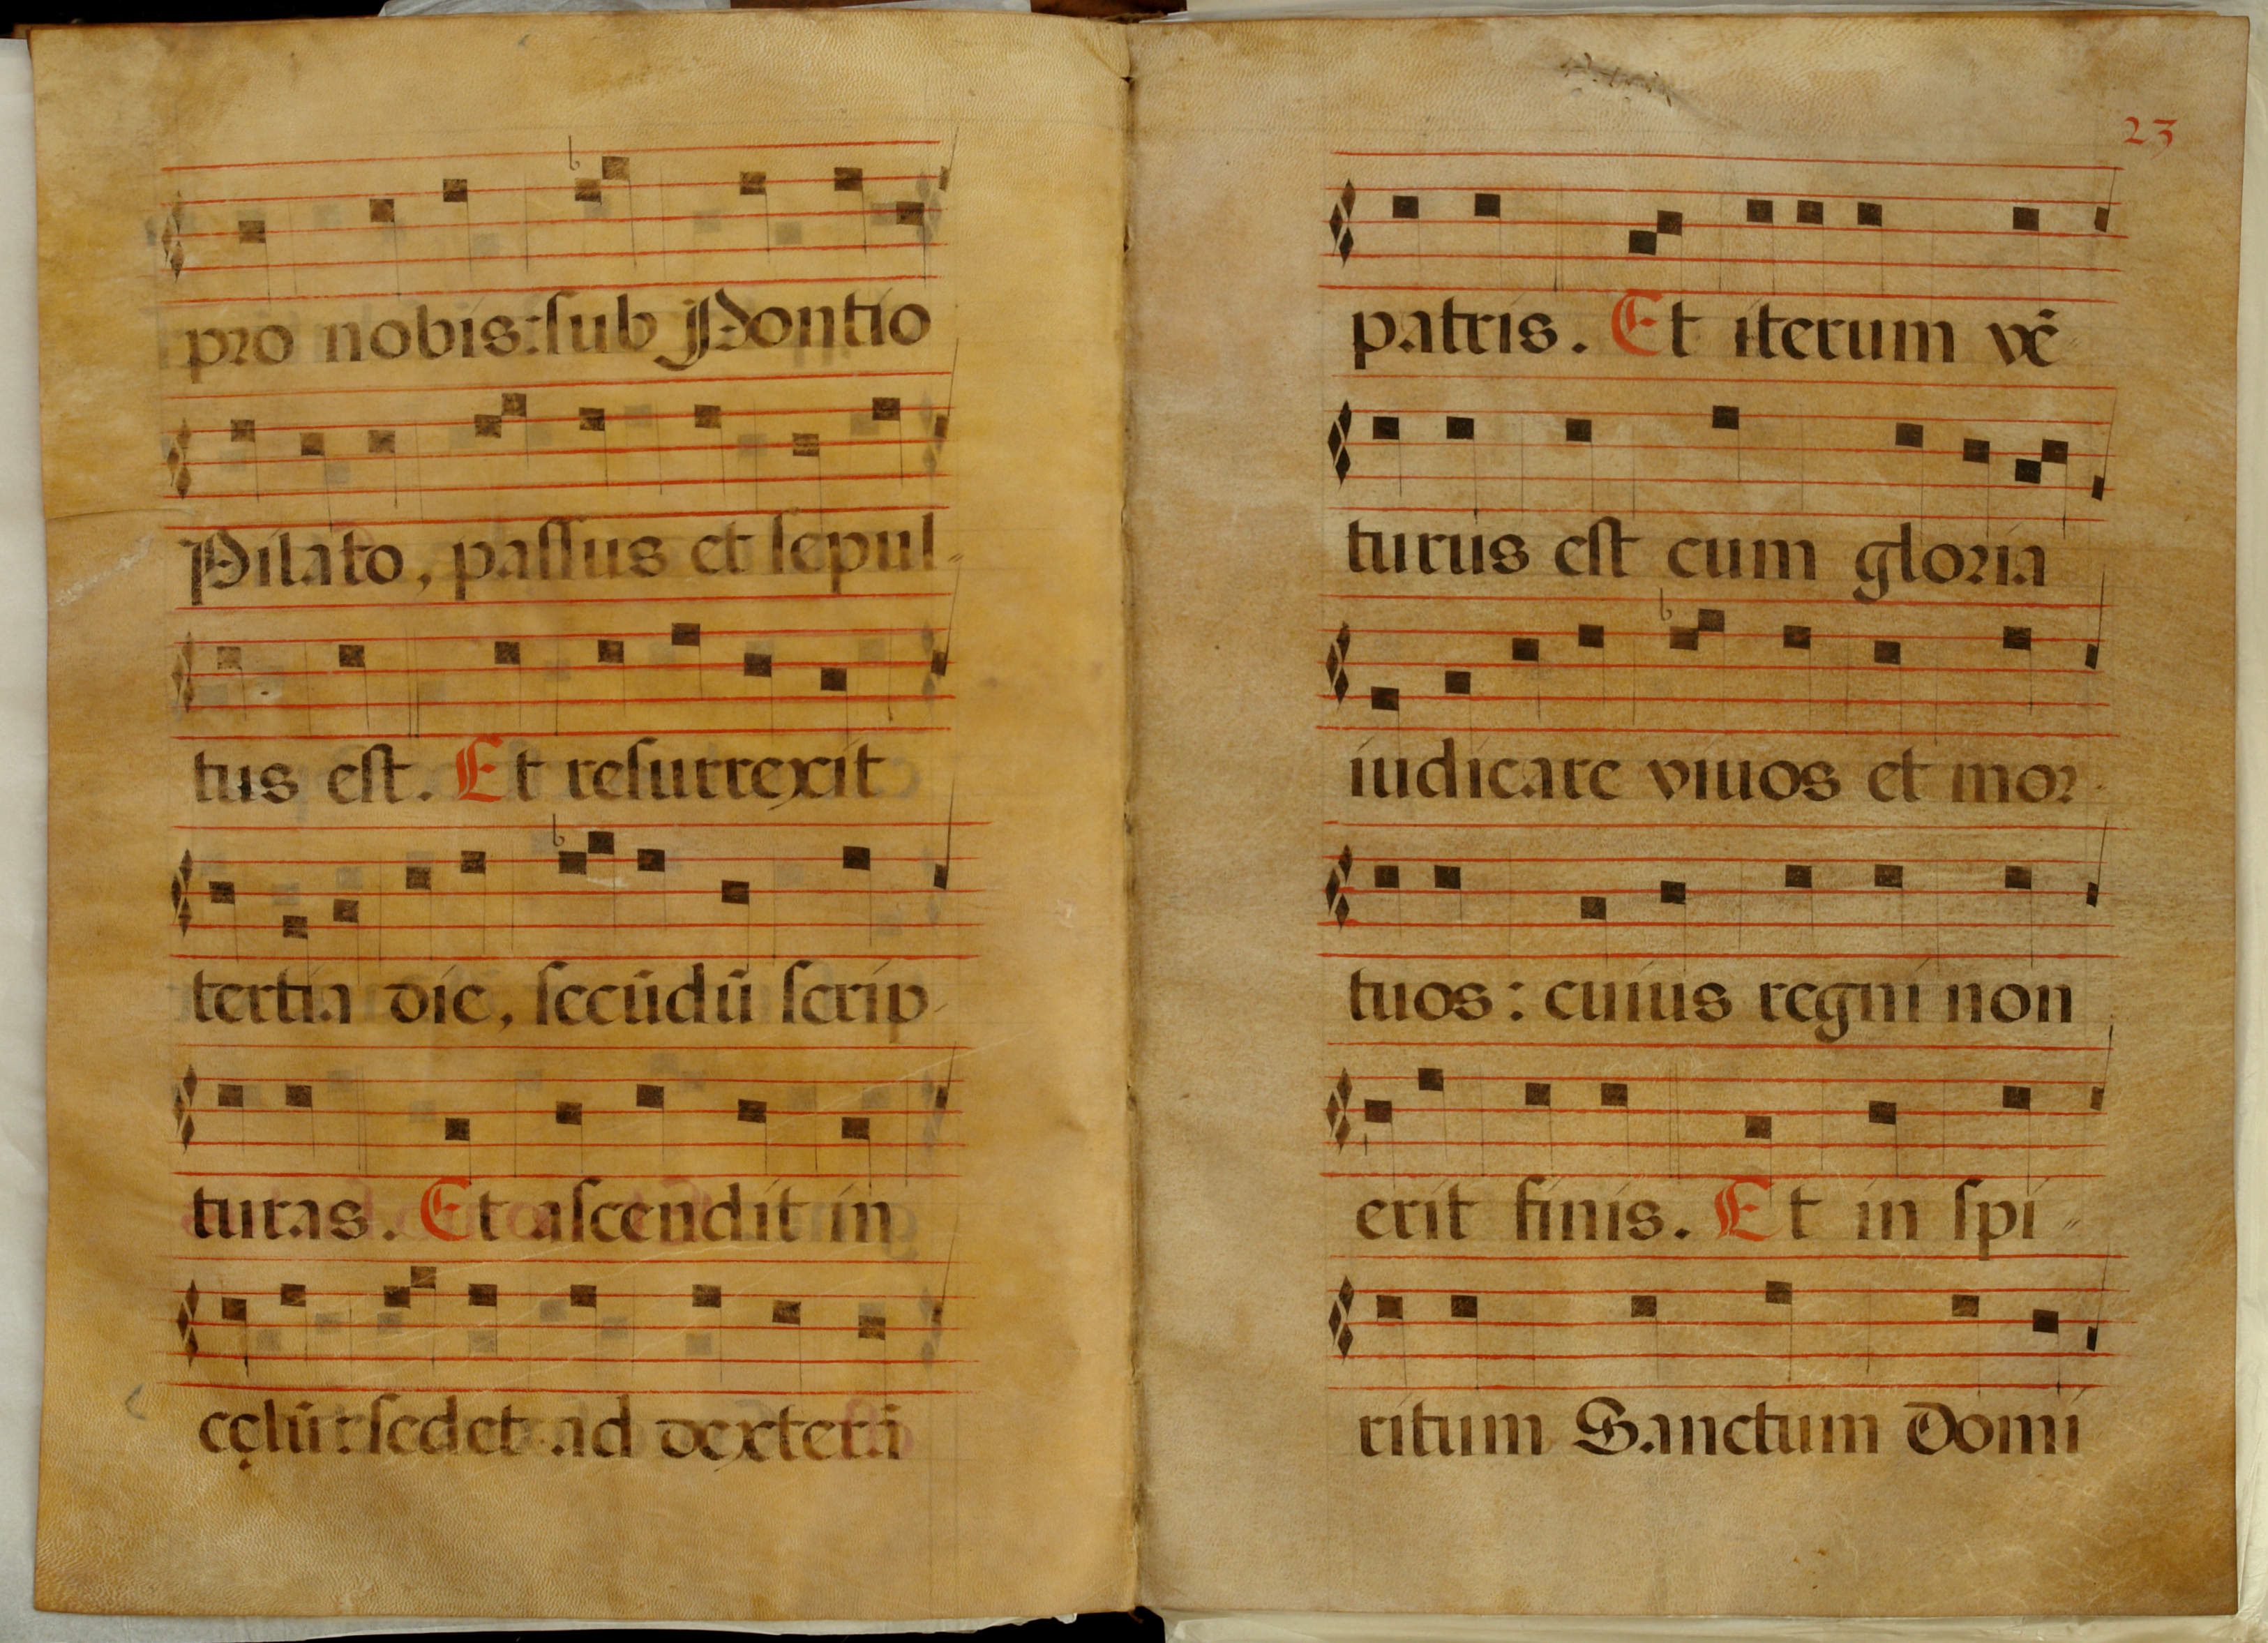 pro nobis: sub Pontio
Pilato, passus et sepul-
tus est. Et resurrexit
tertia die, secūdū scrip-
turas. Et ascendit in
cęlū: sedet ad dexterā
23
patris. Et iterum vē-
turus est cum gloria
iudicare viuos et mor-
tuos: cuius regni non
erit finis. Et in spi-
ritum Sanctum Domi